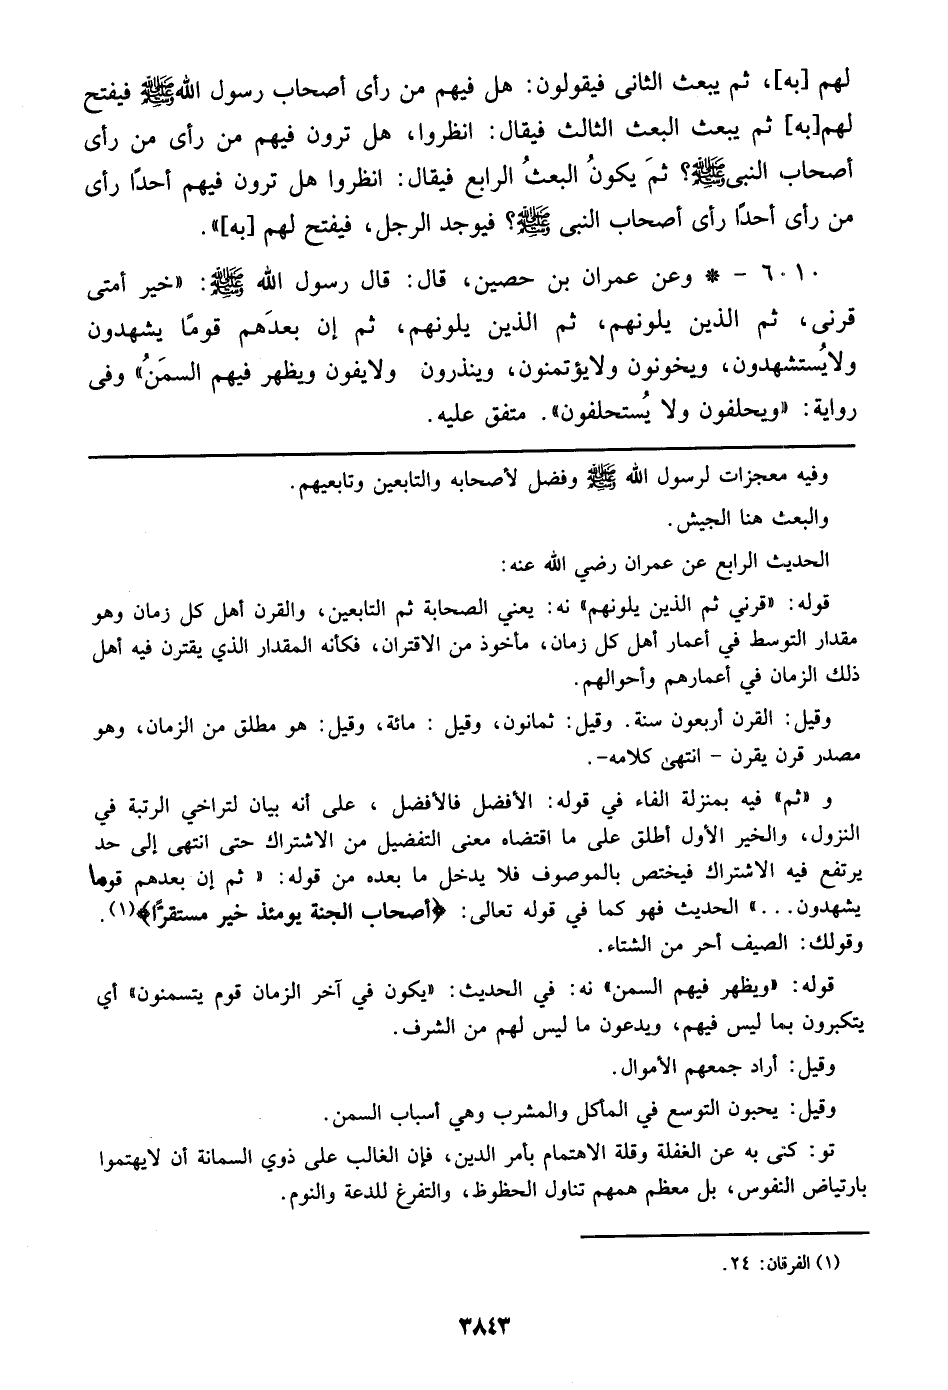 لهم [به]، ثم يبعث الثانى فيقولون: هل فيهم من رأى أصحاب رسول الله ﷺ فيفتح
لهم[به] ثم يبعث البعث الثالث فيقال: انظروا، هل ترون فيهم من رأى من رأى
أصحاب النبى ﷺ؟ ثمَ يكونُ البعثُ الرابع فيقال: انظروا هل ترون فيهم أحدًا رأى
من رأى أحدًا رأى أصحاب النبى ﷺ؟ فيوجد الرجل، فيفتح لهم [به]».
٦٠١٠ – * وعن عمران بن حصين، قال: قال رسول الله ﷺ: «خير أمتى
قرنى، ثم الذين يلونهم، ثم الذين يلونهم، ثم إن بعدَهم قومًا يشهدون
ولايُستشهدون، ويخونون ولايؤتمنون، وينذرون ولايفون ويظهر فيهم السمَنُ» وفى
رواية: «ويحلفون ولا يُستحلفون». متفق عليه.
وفيه معجزات لرسول الله ﷺ وفضل لأصحابه والتابعين وتابعيهم.
والبعث هنا الجيش.
الحديث الرابع عن عمران رضي الله عنه:
قوله: «قرني ثم الذين يلونهم» نه: يعني الصحابة ثم التابعين، والقرن أهل كل زمان وهو
مقدار التوسط في أعمار أهل كل زمان، مأخوذ من الاقتران، فكأنه المقدار الذي يقترن فيه أهل
ذلك الزمان في أعمارهم وأحوالهم.
وقيل: القرن أربعون سنة. وقيل: ثمانون، وقيل : مائة، وقيل: هو مطلق من الزمان، وهو
مصدر قرن يقرن – انتهى كلامه–.
و «ثم» فيه بمنزلة الفاء في قوله: الأفضل فالأفضل ، على أنه بيان لتراخي الرتبة في
النزول، والخير الأول أطلق على ما اقتضاه معنى التفضيل من الاشتراك حتى انتهى إلى حد
يرتفع فيه الاشتراك فيختص بالموصوف فلا يدخل ما بعده من قوله: « ثم إن بعدهم قوما
يشهدون...» الحديث فهو كما في قوله تعالى: ﴿أصحاب الجنة يومئذ خير مستقرًا﴾(١).
وقولك: الصيف أحر من الشتاء.
قوله: «ويظهر فيهم السمن» نه: في الحديث: «يكون في آخر الزمان قوم يتسمنون» أي
يتكبرون بما ليس فيهم، ويدعون ما ليس لهم من الشرف.
وقيل: أراد جمعهم الأموال.
وقيل: يحبون التوسع في المأكل والمشرب وهي أسباب السمن.
تو: كنى به عن الغفلة وقلة الاهتمام بأمر الدين، فإن الغالب على ذوي السمانة أن لايهتموا
بارتياض النفوس، بل معظم هممهم تناول الحظوظ، والتفرغ للدعة والنوم.
(١) الفرقان: ٢٤.
٣٨٤٣